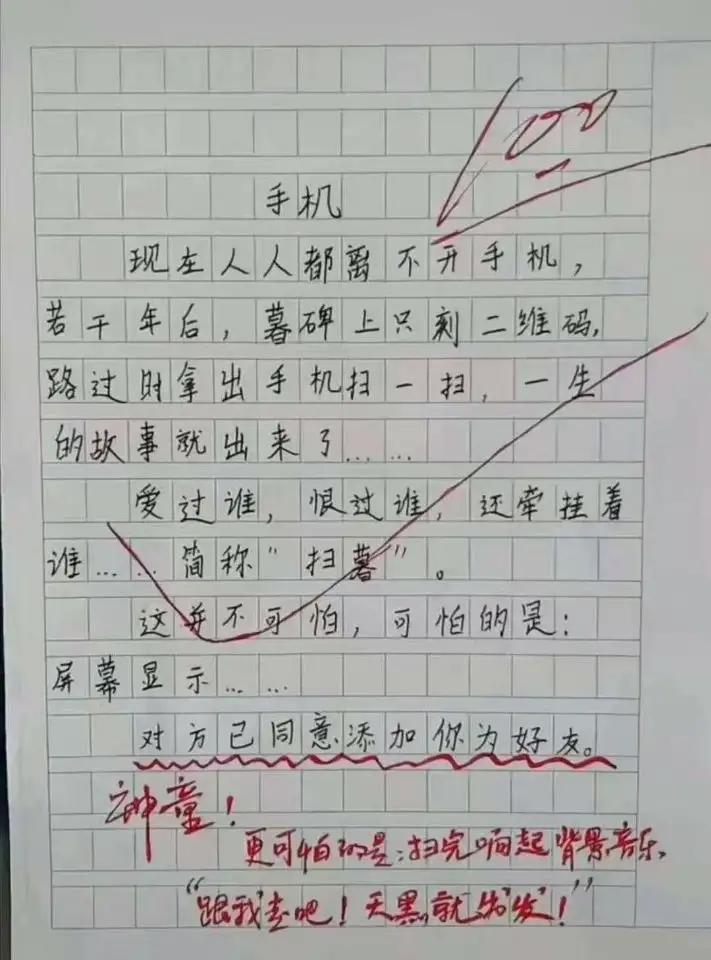 100
手机
现在人人都离不开手机，
若干年后，暮碑上只刻二维码，
路过时拿出手机扫一扫，一生
的故事就出来了……
爱过谁，恨过谁，还牵挂着
谁……简称“扫暮”。
这并不可怕，可怕的是：
屏幕显示……
对方已同意添加你为好友。
神童！
更可怕的是：扫完响起背景音乐
“跟我去吧！天黑就出发！”